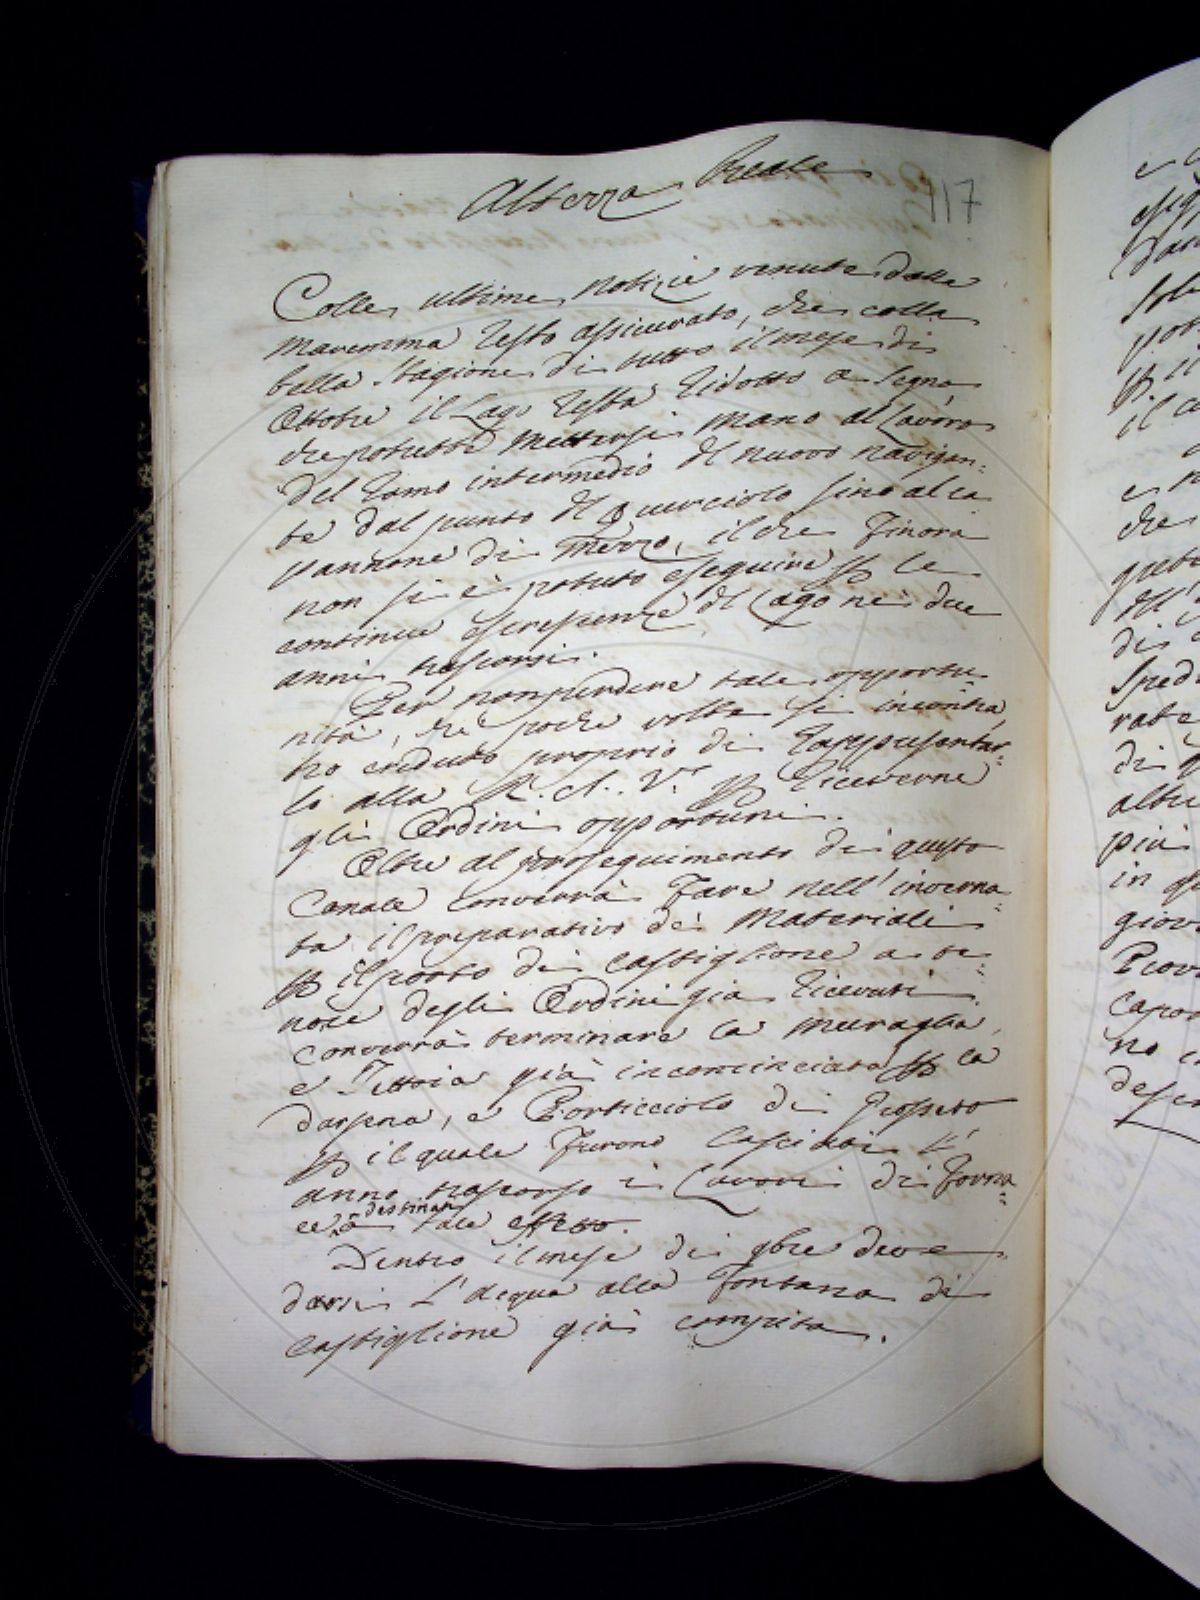 Altezza Reale
117
Colle ultime notizie venute dalla
Maremma resto assicurato, che colla
bella stagione di tutto il mese di
Ottobre il Lago resta ridotto a segno
che potrebbe mettersi mano al Lavoro
del ramo intermedio del nuovo navigan=
te dal punto del Querciolo sino al ca
pannone di Mezzo, il che finora
non si è potuto eseguire p le
continue escrescenze del Lago nei due
anni trascorsi.
Per non perdere tale opportu=
nità, che poche volte si incontra,
ho creduto proprio di rappresentar=
lo alla R. A. V.ra p riceverne
gli Ordini opportuni.
Oltre al proseguimento di questo
Canale converrà fare nell' inverna=
ta il preparativo dei Materiali
p il porto di Castiglione a te=
nore degli Ordini già ricevuti.
Converrà terminare la muraglia,
e Tettoia già incominciata p la
darsena, e Porticciolo di Grosseto
p il quale furono lasciati l'
anno trascorso i Lavori di forna=
ce destinati
a tale effetto.
Dentro il mese di 9bre deve
darsi l'acqua alla fontana di
Castiglione già compita.